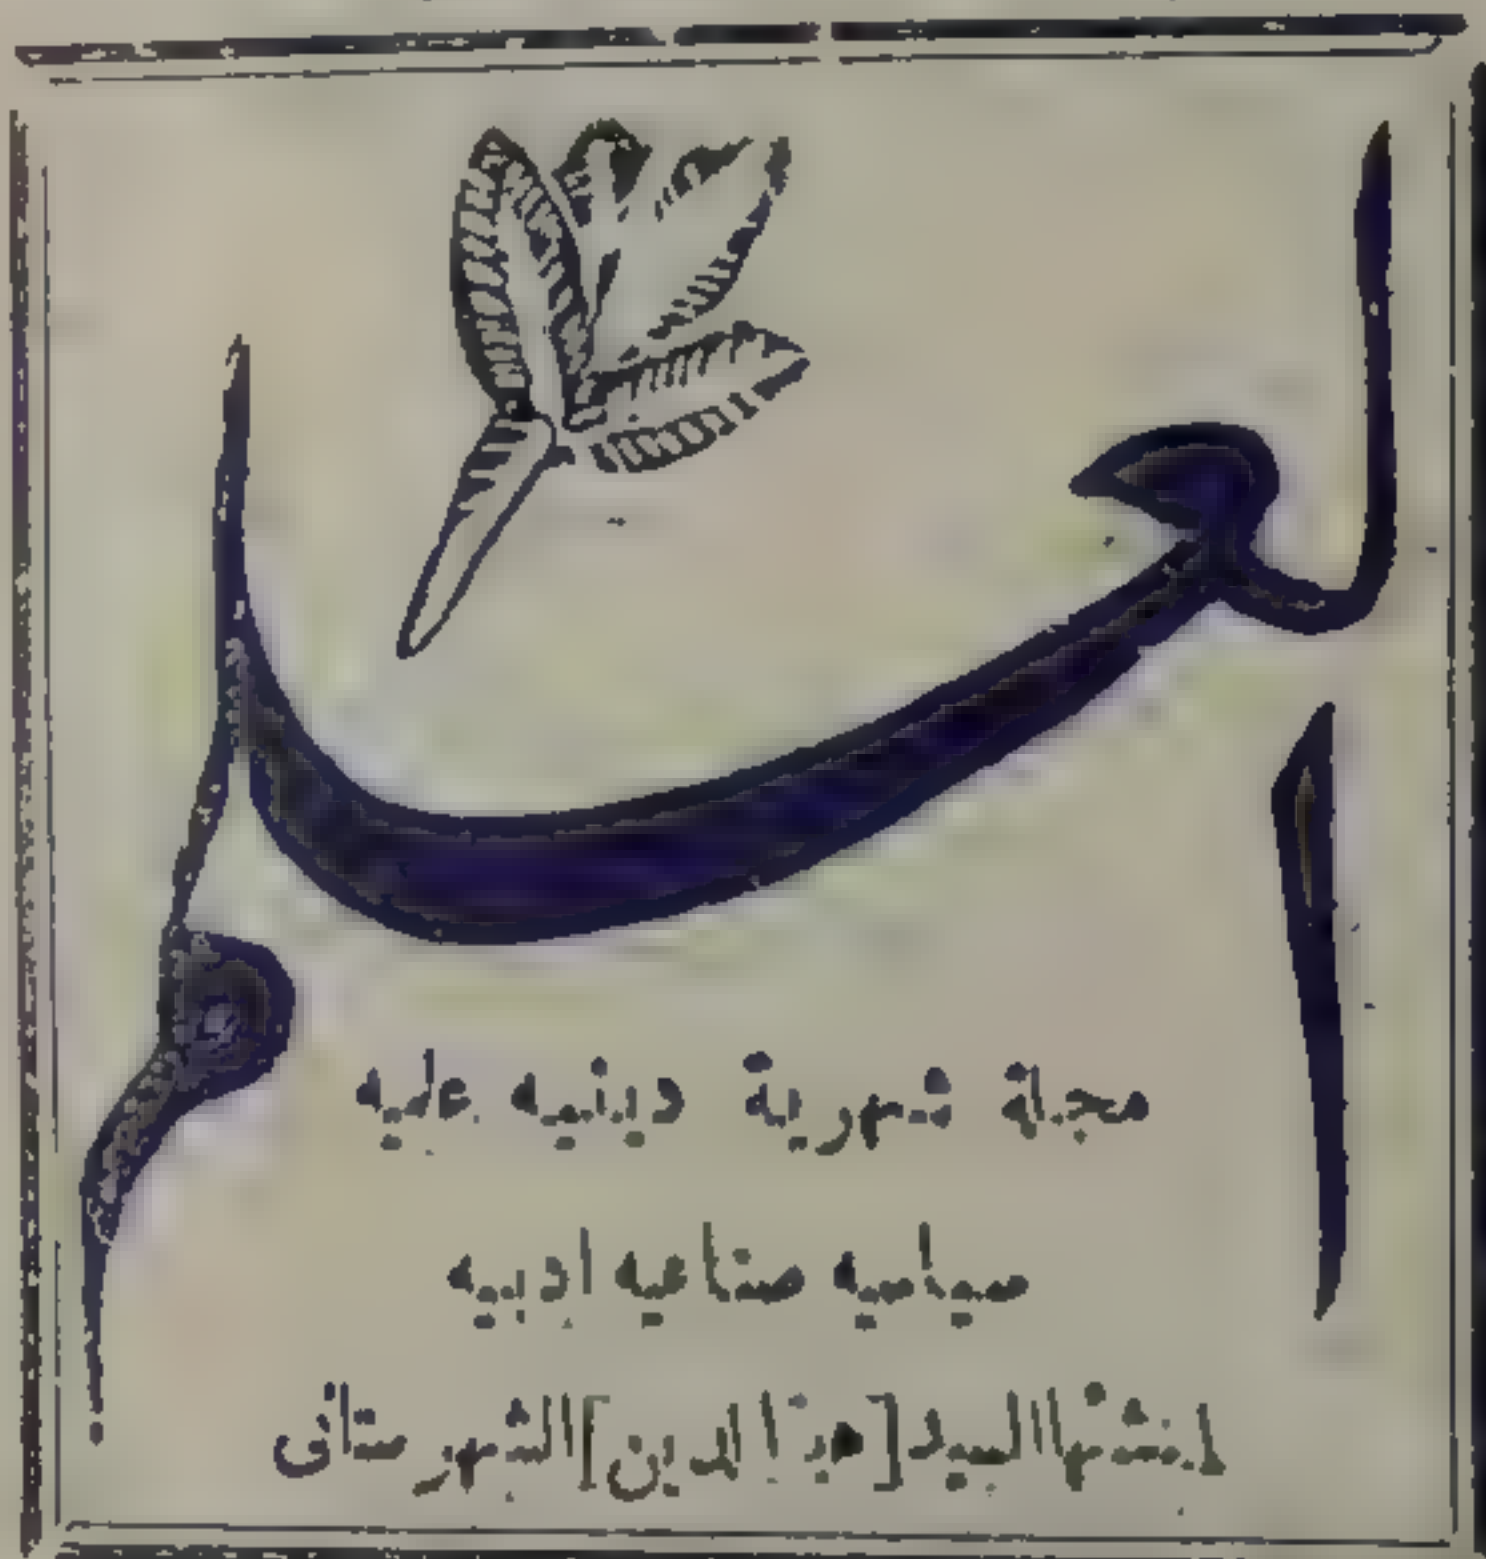 العلم
مجلة شهرية دينيه علميه
سياسيه صناعيه ادبيه
لمنشئها السيد [هبة الدين] الشهرستانى